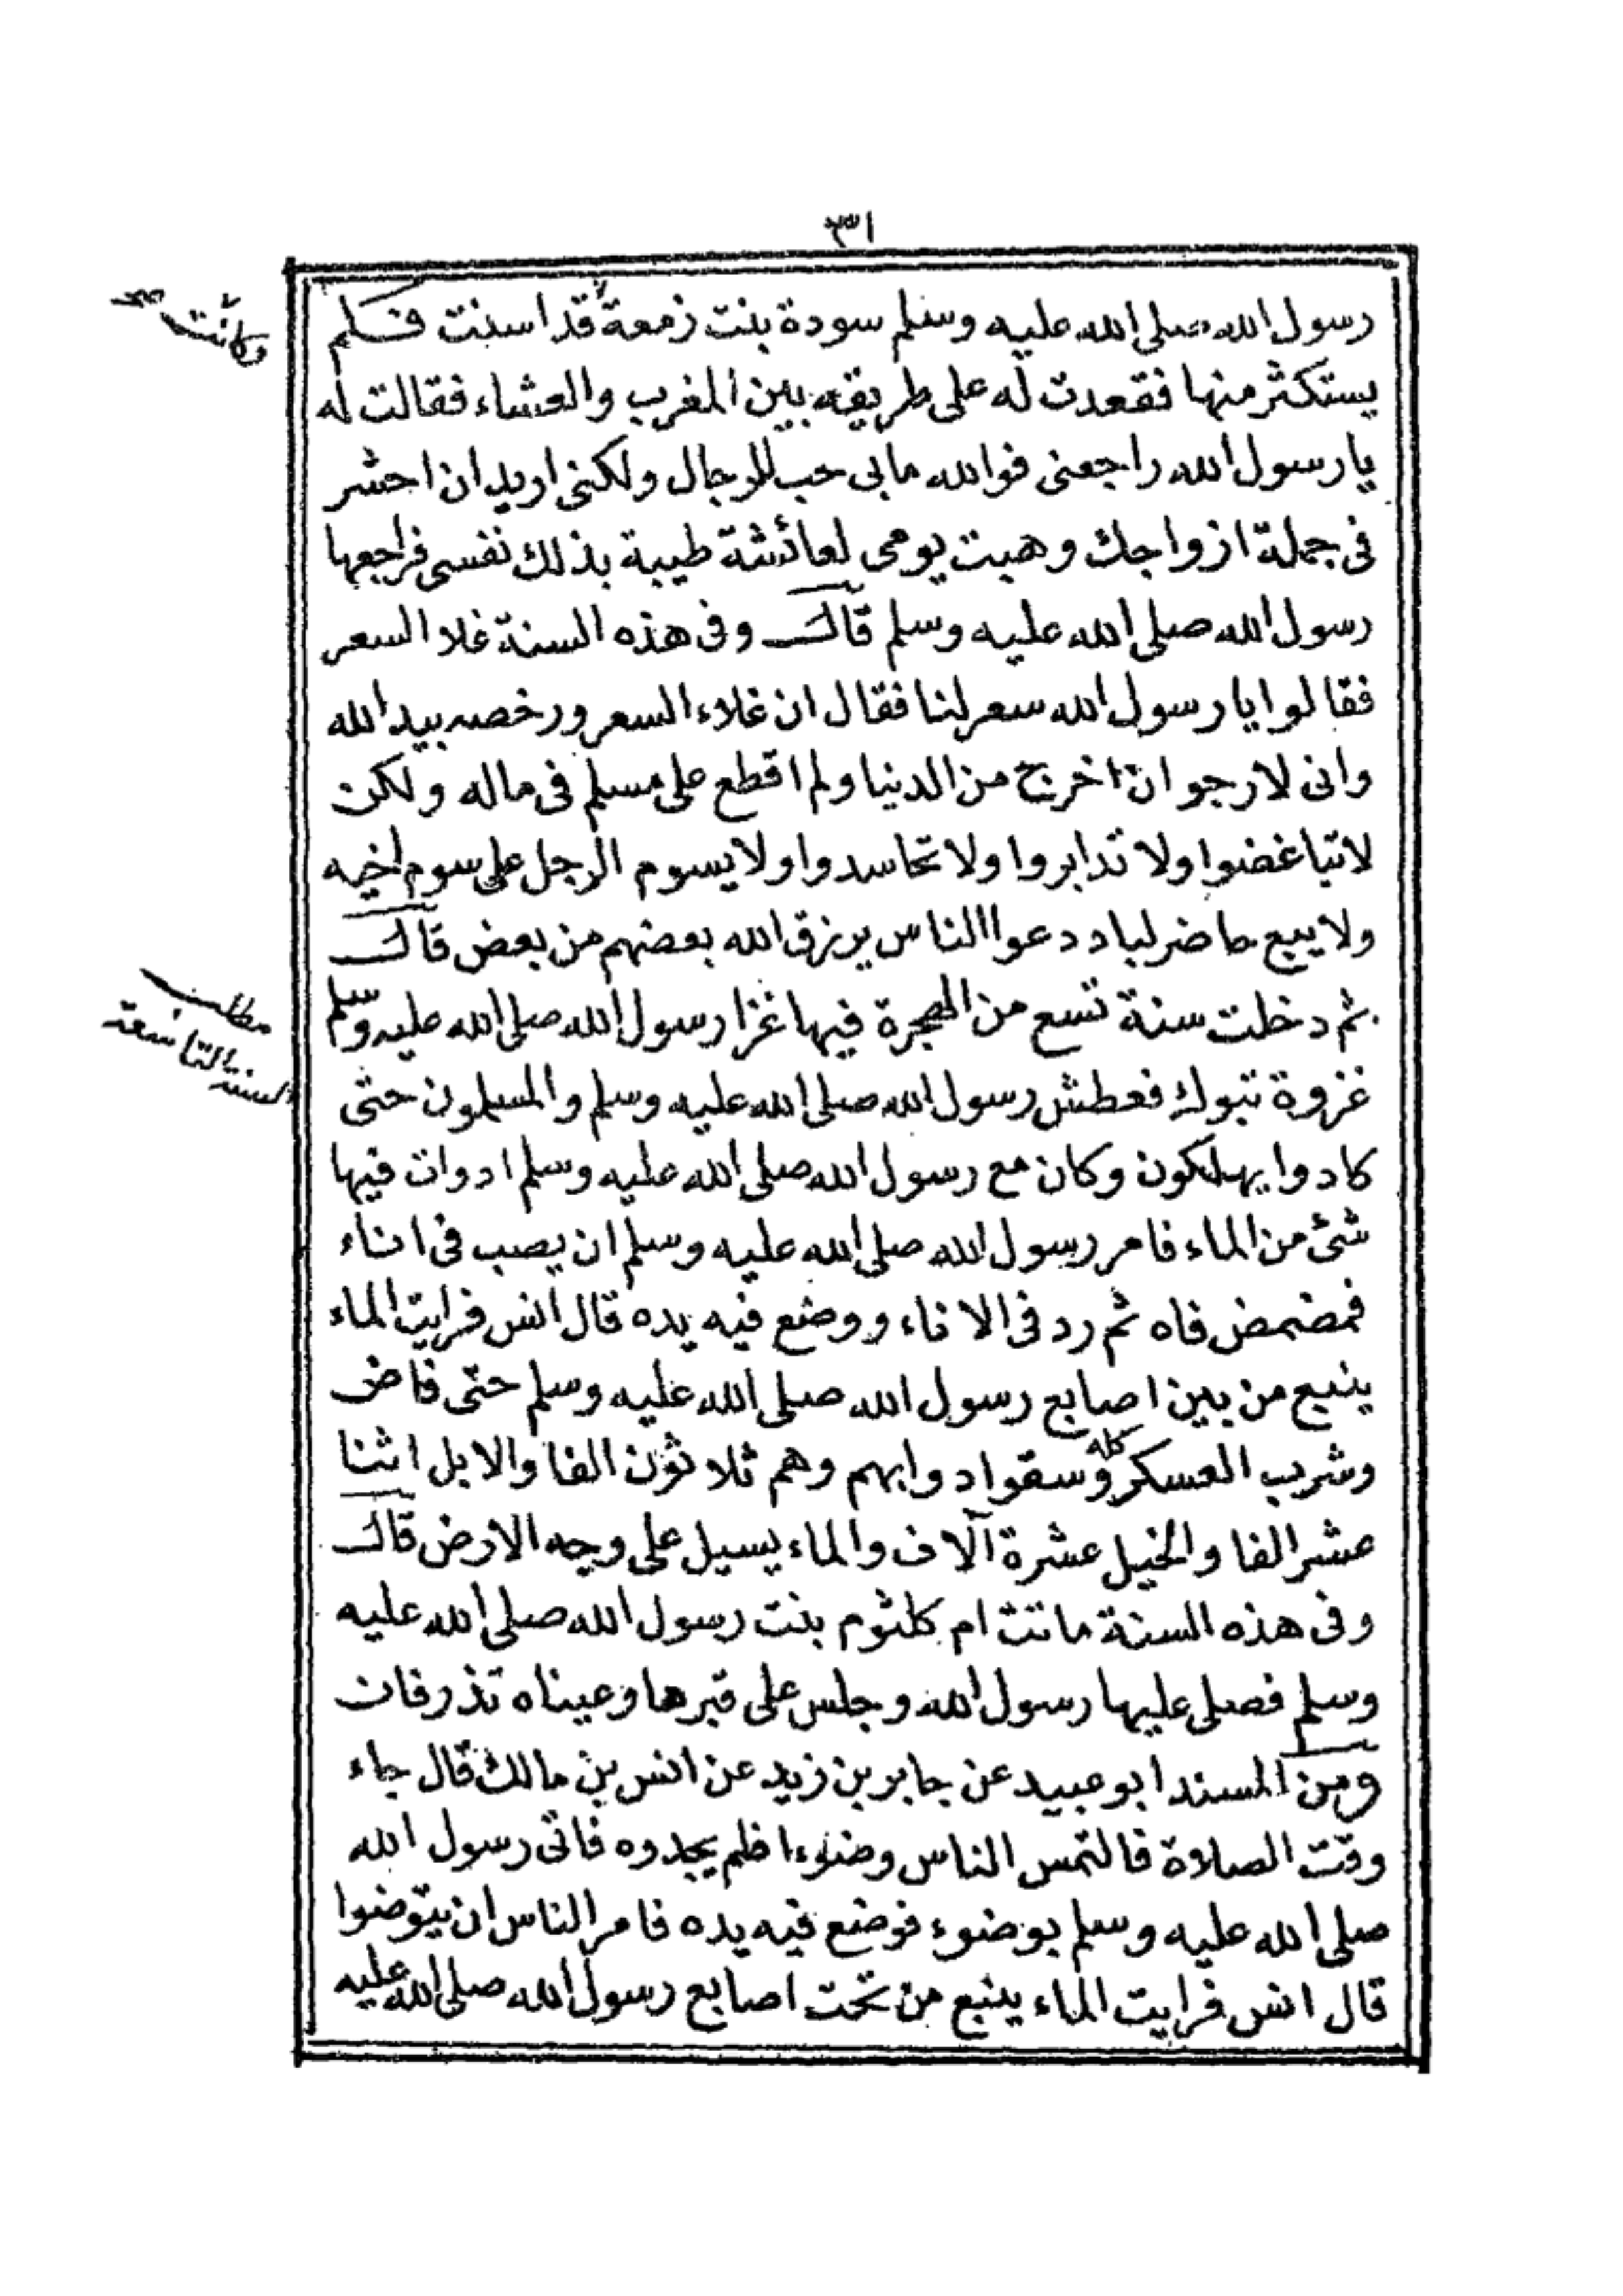 ٣٣١
رسول الله صلى الله عليه وسلم سودة بنت زمعة قد اسنت فلم
وكانت صح
يستكثر منها فقعدت له على طريقه بين المغرب والعشاء فقالت له
يا رسول الله راجعنى فوالله مابى حب للرجال ولكنى اريد ان احشر
فى جملة ازواجك وهبت يومى لعائشة طيبة بذلك نفسى فراجعها
رسول الله صلى الله عليه وسلم قال وفى هذه السنة غلا السعر
فقالوا يا رسول الله سعر لنا فقال ان غلاء السعر ورخصه بيد الله
وانى لارجو ان اخرج من الدنيا ولم اقطع على مسلم فى ماله ولكن
لا تباغضوا ولا تدابروا ولا تحاسدوا ولا يسوم الرجل على سوم اخيه
ولا يبيع حاضر لباد دعوا الناس يرزق الله بعضهم من بعض قال
ثم دخلت سنة تسع من الهجرة فيها غزا رسول الله صلى الله عليه وسلم
مطلب
السنة التاسعة
غزوة تبوك فعطش رسول الله صلى الله عليه وسلم والمسلمون حتى
كادوا يهلكون وكان مع رسول الله صلى الله عليه وسلم ادوات فيها
شئ من الماء فامر رسول الله صلى الله عليه وسلم ان يصب فى اناء
فمضمض فاه ثم رد فى الاناء ووضع فيه يده قال انس فرايت الماء
ينبع من بين اصابع رسول الله صلى الله عليه وسلم حتى فاض
وشرب العسكر كله وسقوا دوابهم وهم ثلاثون الفا والابل اثنا
عشر الفا والخيل عشرة آلاف والماء يسيل على وجه الارض قال
وفى هذه السنة ماتت ام كلثوم بنت رسول الله صلى الله عليه
وسلم فصلى عليها رسول الله وجلس على قبرها وعيناه تذرفان
ومن المسند ابو عبيد عن جابر بن زيد عن انس بن مالك قال جاء
وقت الصلاة فالتمس الناس وضوءا فلم يجدوه فاتى رسول الله
صلى الله عليه وسلم بوضوء فوضع فيه يده فامر الناس ان يتوضوا
قال انس فرايت الماء ينبع من تحت اصابع رسول الله صلى الله عليه